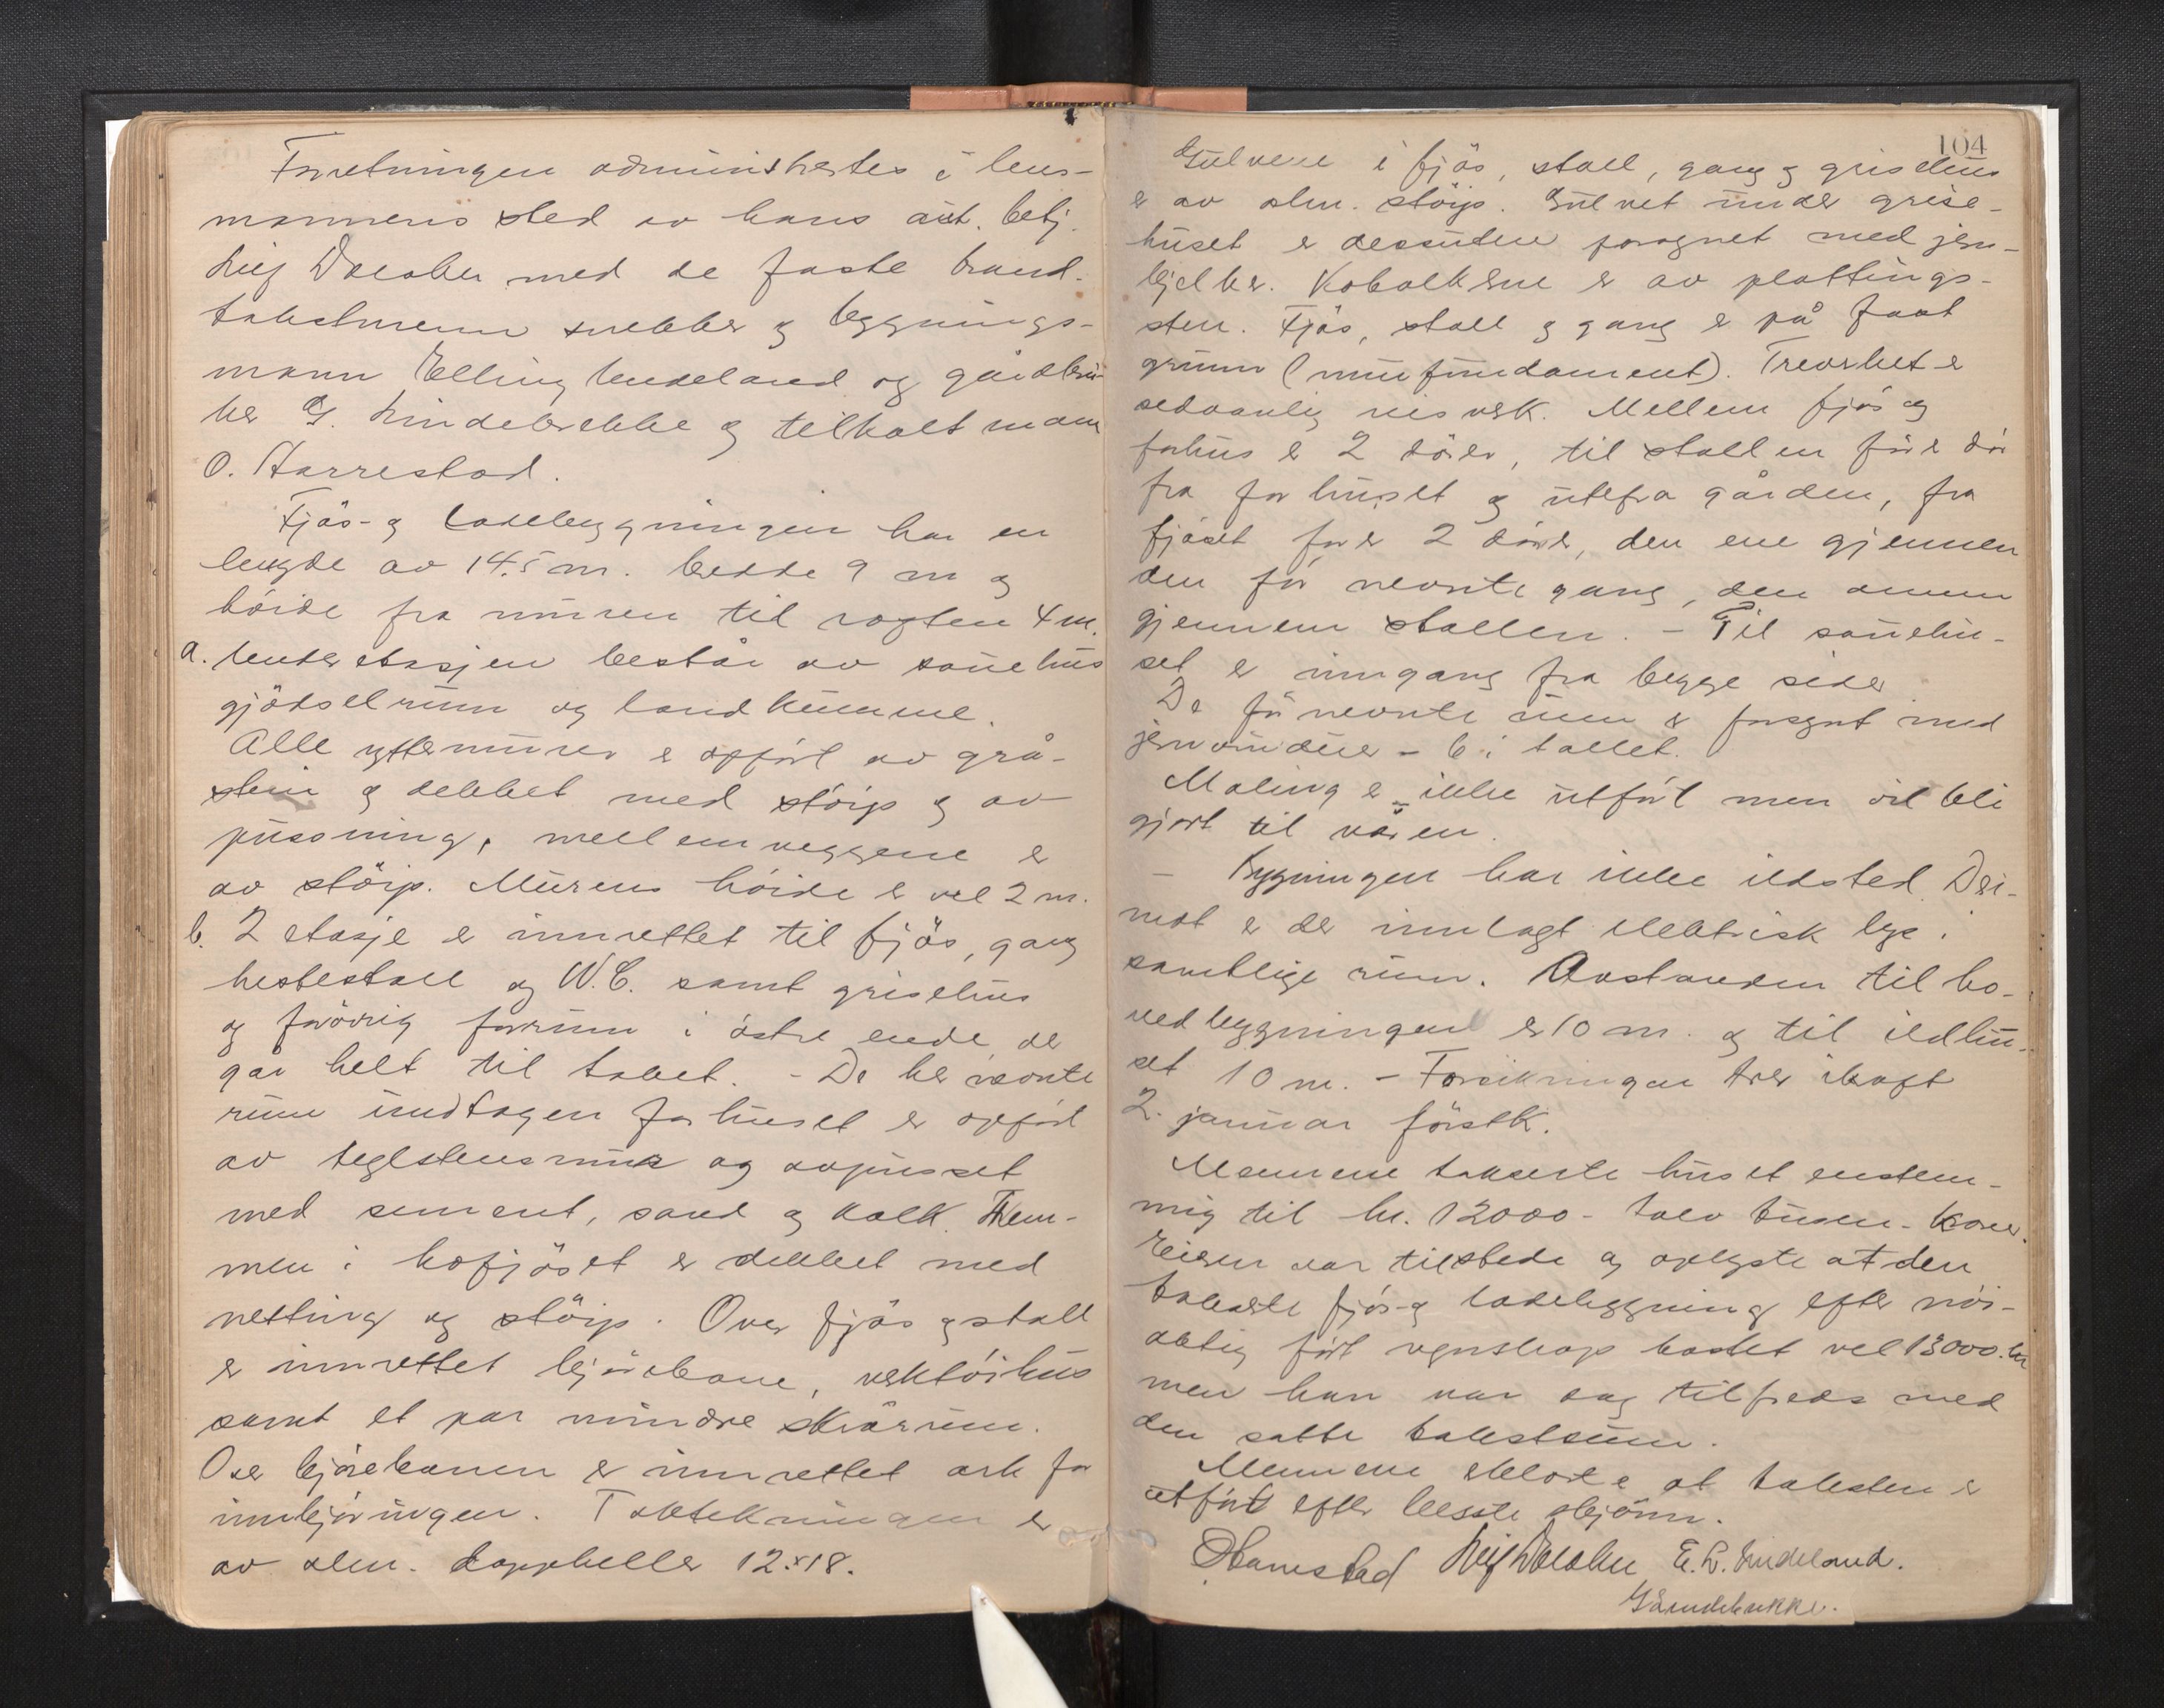 Forretningen administertes i lens-
mannens sted av hans aut. betj.
Leif med de faste brand-
takstmenn snekker og byggnings-
mann Elling Undeland og gårdbru-
ker G. Lindebrekke og tilkalt mann
O. Harrestad.
Fjøs- og ladebyggningen har en
lengde av 14.5 m. bredde 9 m og
høide fra muren til raften 4 m.
a. Underetasjen består av sauehus
gjødselrum og landkumme.
Alle yttermurer er opført av grå-
stein og dekket med støip og av-
pussning, mellemveggene er
av støip. Murens høide er vel 2 m.
b. 2 etasje er innrettet til fjøs, gang
hestestall og W.C. samt grisehus
og forøvrig forrum i østre ende der
går helt til taket. - De her nevnte
rum undtagen forhuset er opført
av teglstensmur og avpusset
med sement, sand og kalk.
men i kofjøset er dekket med
netting og støip. Over fjøs og stall
er innrettet kjørebane, verktøihus
samt et par mindre skrårum.
Over kjørebanen er innrettet ark for
innkjøringen. Taktekningen er
av alm. 12.x18.
104
Gulvene i fjøs, stall, gang og grisehus
er av alm. støip. Gulvet under grise-
huset er dessuten forsynet med jern-
bjelker. Kobåsene er av plattings-
sten. Fjøs, stall og gang er på fast
grunn (murfundament). Treverket er
sedvanlig reisverk. Mellem fjøs og
forhus er 2 dører, til stallen fører dør
fra forhuset og utefra gården, fra
fjøset fører 2 dører, den ene gjennem
den før nevnte gang, den annen
gjennem stallen. - Til sauehu-
set er inngang fra begge sider
De før nevnte rum er forsynt med
jernvinduer - 6 i tallet.
Maling er ikke utført men vil bli
gjort til våren.
- Bygningen har ikke ildsted. Der-
mot er der innlagt elektrisk lys i
samtlige rum. Avstanden til ho-
vedbyggningen er 10 m. og til ildhu-
set 10 m. - Forsikringen trer ikraft
2. januar førstk.
Mennene takserte huset enstem-
mig til kr. 12000 - tolv tusen - kroner.
Eieren var tilstede og oplyste at den
takserte fjøs og ladebyggning efter nøi-
aktig ført regnskap kostet vel 13000. kr
men han var dog tilfreds med
den satte takstsum.
Mennene erklærte at taksten er
utført efter beste skjønn.
O Harrestad Leif E. L. Undeland.
G Lindebrekke.